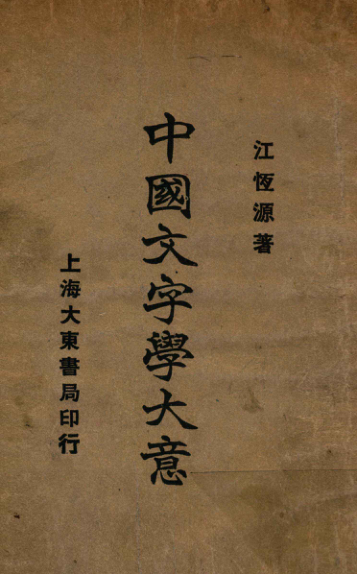 江恆源著
中國文字學大意
上海大東書局印行